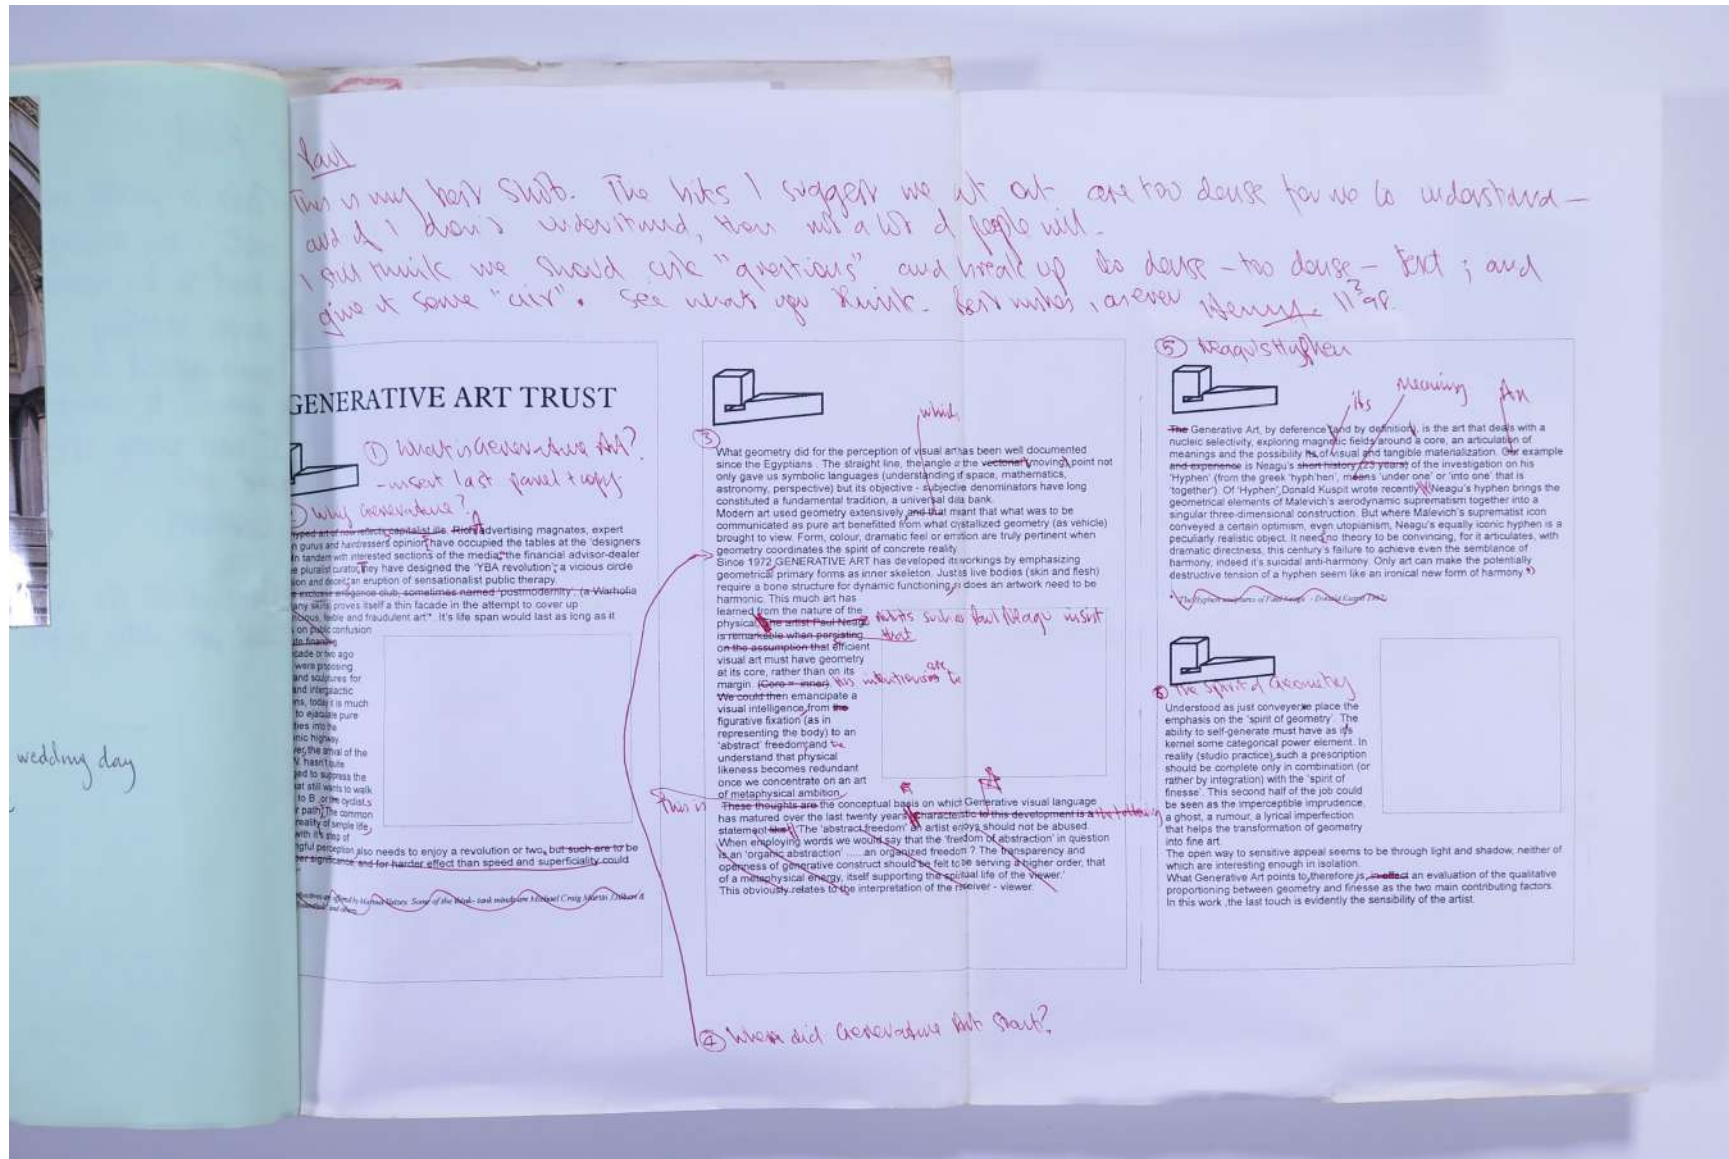 wedding day
Paul
This is my best shot. The bits I suggest we cut out are too dense for me to understand —
and if I don't understand, then not a lot of people will.
I still think we should ask "questions" and break up so dense – too dense – text ; and
give it some "air". See what you think. Best wishes, as ever 11 98.
GENERATIVE ART TRUST
① What is Generative Art?
- insert last panel + copy
Why Generative?
capitalist ills. Rich advertising magnates, expert
gurus and hairdressers opinion, have occupied the tables at the 'designers
in tandem with interested sections of the media, the financial advisor-dealer
pluralist curator, They have designed the 'YBA revolution'; a vicious circle
and deceit, an eruption of sensationalist public therapy.
arrogance club, sometimes named 'postmodernity', (a Warholia
any skills, proves itself a thin facade in the attempt to cover up
feeble and fraudulent art". It's life span would last as long as it
on public confusion
cade or two ago
were proposing
and sculptures for
and intergalactic
today it is much
to ejaculate pure
into the
nic highway
the arrival of the
hasn't quite
to suppress the
at still wants to walk
to B , or the cyclist,s
path, The common
reality of simple life,
with it's step of
perception also needs to enjoy a revolution or two, but such are to be
significance and for harder effect than speed and superficiality could
Some of the think- tank minds are Michael Craig Martin
③
which
What geometry did for the perception of visual art has been well documented
since the Egyptians . The straight line, the angle or the vectorial (moving) point not
only gave us symbolic languages (understanding if space, mathematics,
astronomy, perspective) but its objective - subjective denominators have long
constituted a fundamental tradition, a universal data bank.
Modern art used geometry extensively, and that meant that what was to be
communicated as pure art benefitted from what crystallized geometry (as vehicle)
brought to view. Form, colour, dramatic feel or emotion are truly pertinent when
geometry coordinates the spirit of concrete reality.
Since 1972 GENERATIVE ART has developed its workings by emphasizing
geometrical primary forms as inner skeleton. Just as live bodies (skin and flesh)
require a bone structure for dynamic functioning, so does an artwork need to be
harmonic. This much art has
learned from the nature of the
physical. The artist Paul Neagu Artists such as Paul Neagu insist
is remarkable when persisting that
on the assumption that efficient
visual art must have geometry
at its core, rather than on its
margin. (Core = inner). His intentions are to
We could then emancipate a
visual intelligence from the
figurative fixation (as in
representing the body) to an
'abstract' freedom, and to
understand that physical
likeness becomes redundant
once we concentrate on an art
of metaphysical ambition.
This is These thoughts are the conceptual basis on which Generative visual language
has matured over the last twenty years. Characteristic to this development is a the following
statement like: 'The 'abstract freedom' an artist enjoys should not be abused.
When employing words we would say that the 'freedom of abstraction' in question
is an 'organic abstraction' .....an organized freedom ? The transparency and
openness of generative construct should be felt to be serving a higher order, that
of a metaphysical energy, itself supporting the spiritual life of the viewer.'
This obviously relates to the interpretation of the receiver - viewer.
④ When did Generative Art Start?
⑤ Neagu's Hyphen
its Meaning An
The Generative Art, by deference (and by definition), is the art that deals with a
nucleic selectivity, exploring magnetic fields around a core, an articulation of
meanings and the possibility its of visual and tangible materialization. Our example
and experience is Neagu's short history (23 years) of the investigation on his
'Hyphen' (from the greek 'hyph'hen', means 'under one' or 'into one' that is
'together'). Of 'Hyphen', Donald Kuspit wrote recently "Neagu's hyphen brings the
geometrical elements of Malevich's aerodynamic suprematism together into a
singular three-dimensional construction. But where Malevich's suprematist icon
conveyed a certain optimism, even utopianism, Neagu's equally iconic hyphen is a
peculiarly realistic object. It needs no theory to be convincing, for it articulates, with
dramatic directness, this century's failure to achieve even the semblance of
harmony, indeed it's suicidal anti-harmony. Only art can make the potentially
destructive tension of a hyphen seem like an ironical new form of harmony
"The Hyphen sculptures of Paul Neagu" - Donald Kuspit
⑥ The Spirit of Geometry
Understood as just conveyer, to place the
emphasis on the 'spirit of geometry'. The
ability to self-generate must have as it's
kernel some categorical power element. In
reality (studio practice), such a prescription
should be complete only in combination (or
rather by integration) with the 'spirit of
finesse'. This second half of the job could
be seen as the imperceptible imprudence,
a ghost, a rumour, a lyrical imperfection
that helps the transformation of geometry
into fine art.
The open way to sensitive appeal seems to be through light and shadow, neither of
which are interesting enough in isolation.
What Generative Art points to, therefore is, in effect an evaluation of the qualitative
proportioning between geometry and finesse as the two main contributing factors.
In this work ,the last touch is evidently the sensibility of the artist.